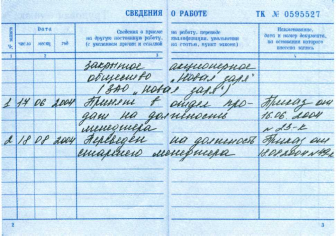 СВЕДЕНИЯ О РАБОТЕ ТК № 0595527
№ записи Дата Сведения о приеме на работу, переводе
на другую постоянную работу, квалификации, увольнении
(с указанием причин и ссылкой на статью, пункт закона)
Наименование,
дата и номер документа,
на основании которого
внесена запись
число месяц год
1 2 3 4
закрытое акционерное
общество „Новая заря"
(ЗАО „Новая заря")
1 17 06 2004 Принят в отдел про-
даж на должность
менеджера
Приказ от
16.06.2004
№ 23-к
2 18 08 2004 Переведен на должность
старшего менеджера
Приказ от
2 3